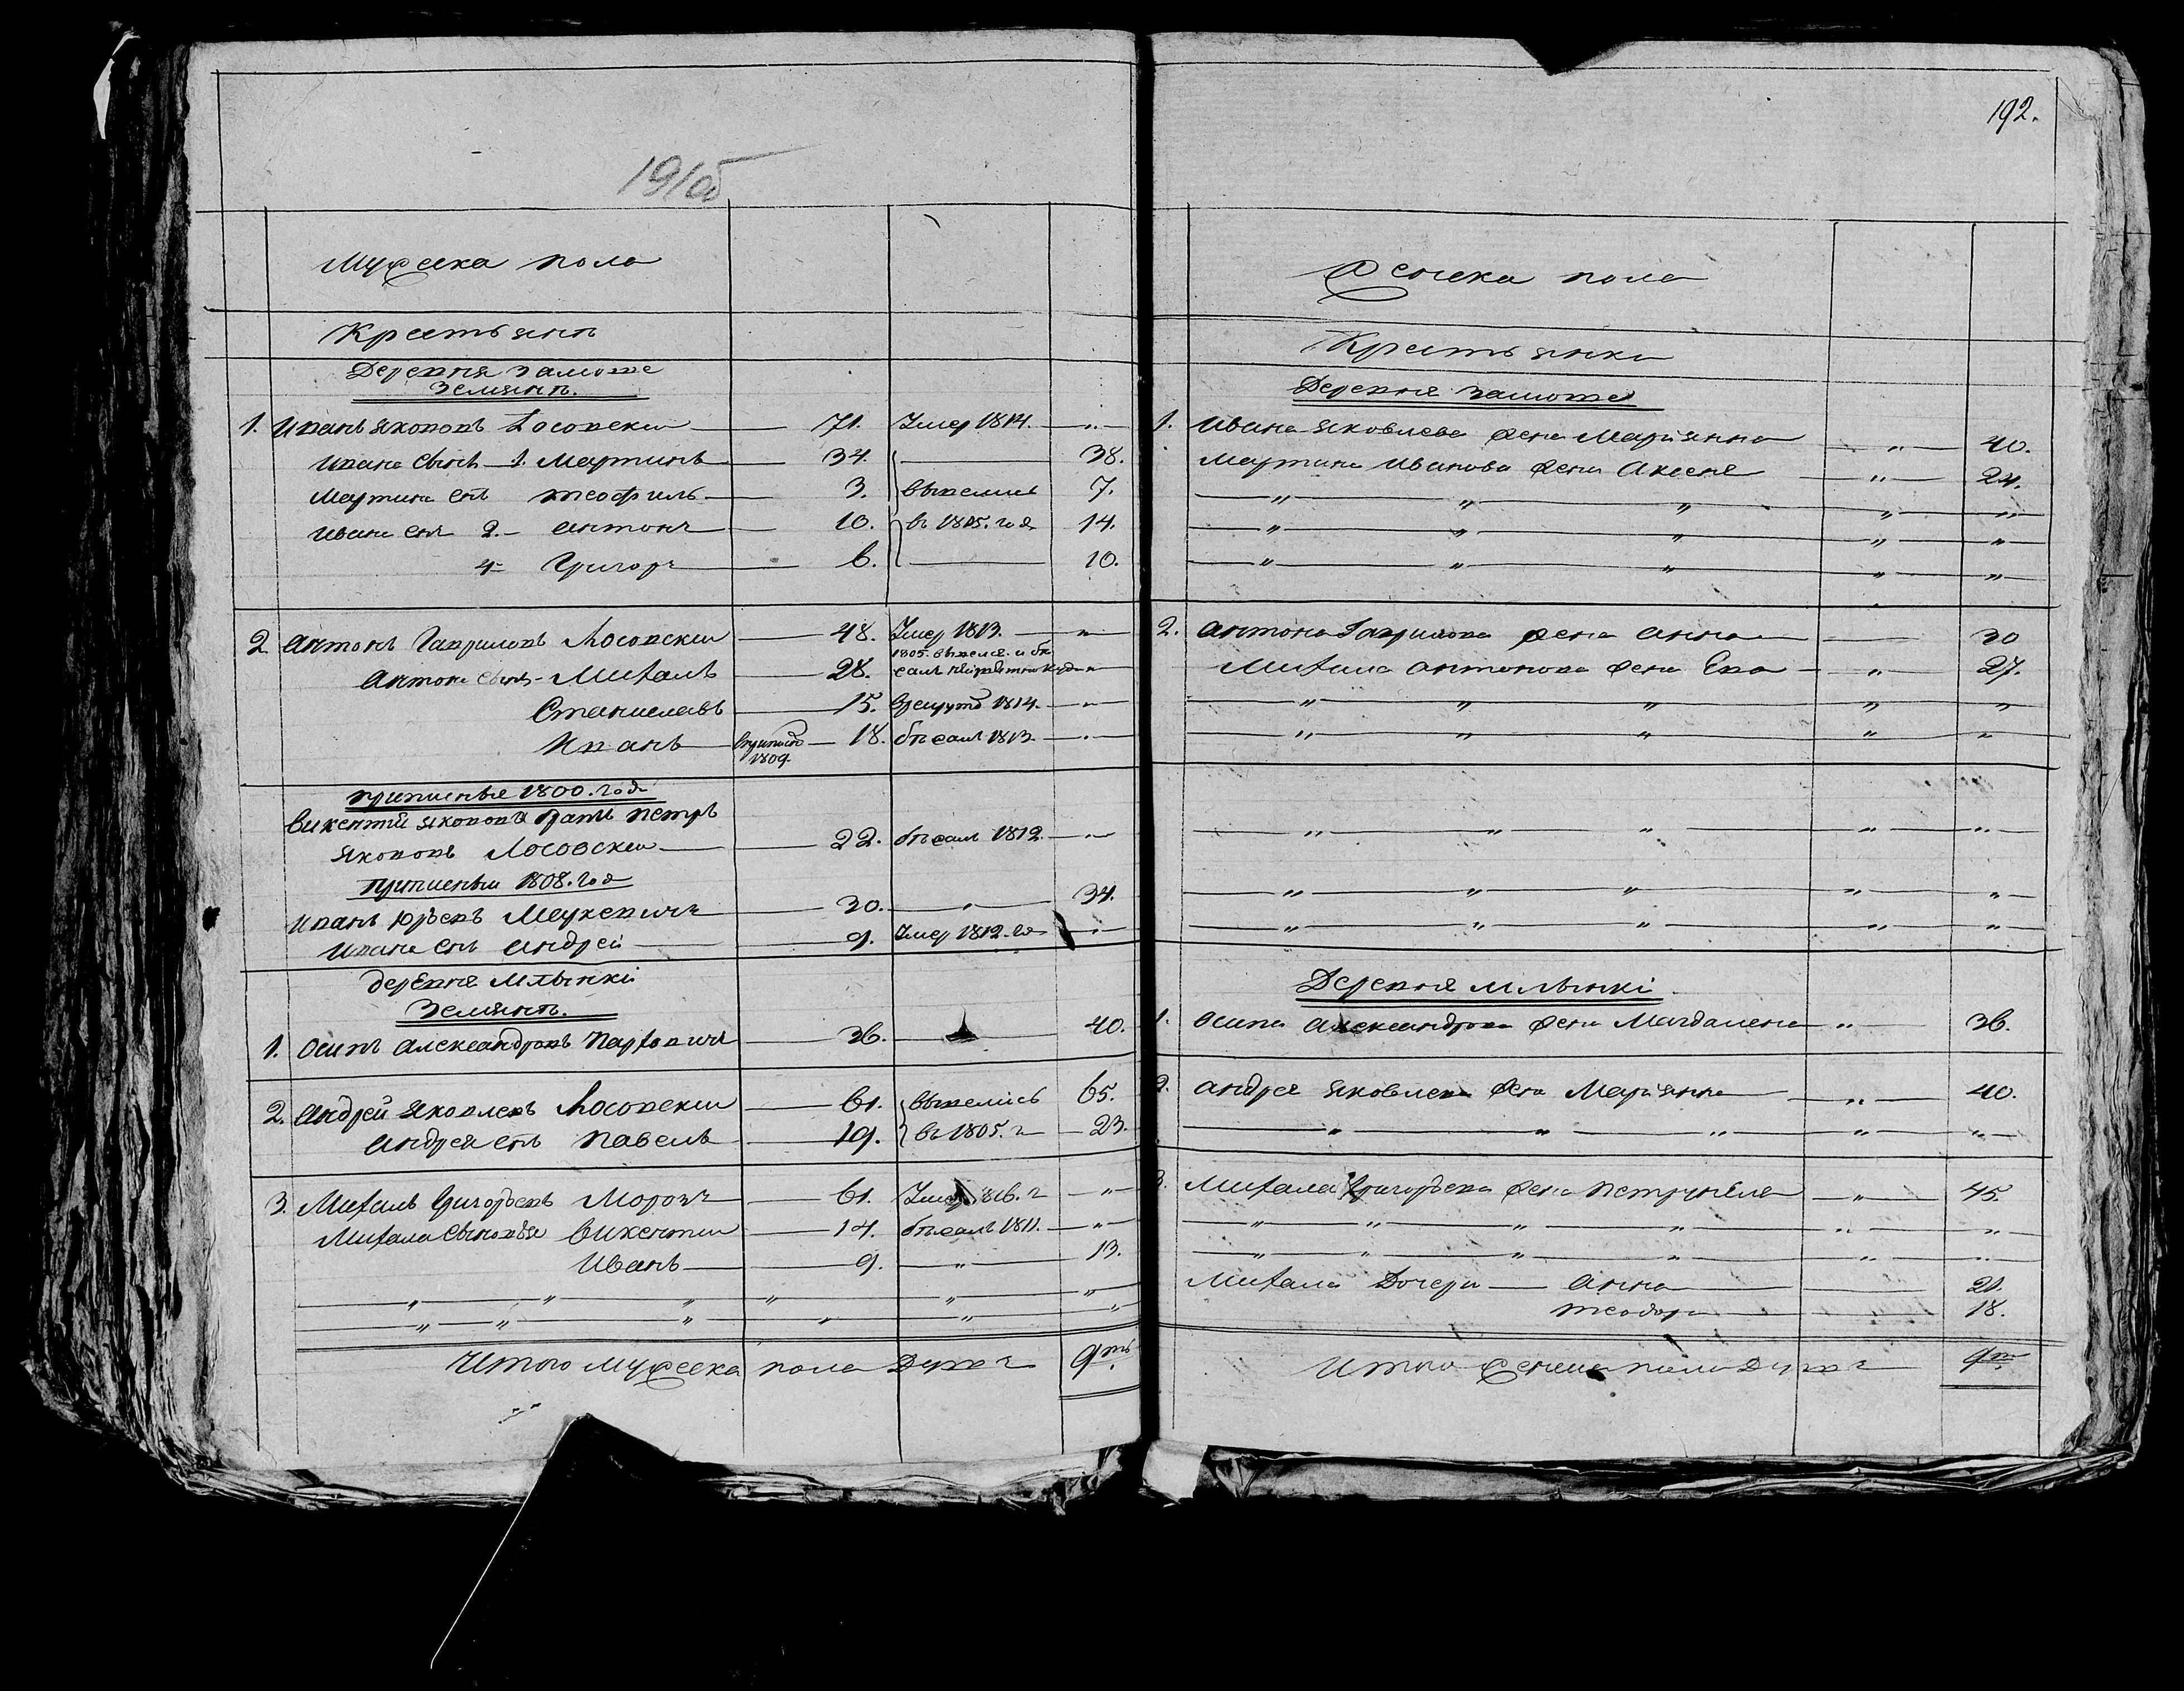 191об
Мужеска пола
Крестьянъ
Деревня Замоше
Землянъ.
1. Иванъ Якововъ Лосовски — 71. Умер 1814. — "
Ивана Сынъ — 1. Мартинъ — 34. — 38.
Мартина Снъ Теофиль — 3. вывелись 7.
Ивана Снъ 2. — Антонъ — 10. въ 1815. год 14.
4 — Григоръ — 6. — 10.
2 Антонъ Гавриловъ Лосовски — 48. Умер 1813. — "
1805. вывелся. и бе
Антона Сынъ — Михалъ — 28. жалъ "
Станиславъ — 15. 1814. — "
Иванъ — 18. бежалъ 1813. — "
1809.
приписные 1800. года
Викентий Якововъ братъ Петръ
Якововъ Лосовски — 22. бежалъ 1812. — "
приписные 1808. год
Иванъ Юрьевъ — 30. — " — 34.
Ивана Снъ Андрей — 9. Умер 1812. го — "
деревня Млынкі
Землянъ.
1. Осипъ Александровъ — 36. — 40.
2. Андрей Яковлевъ Лосовски — 61. вывелись 65.
Андрея Снъ Павелъ — 19. въ 1805. г — 23.
3. Михалъ Григорьевъ Морозъ — 61. Умер 1816. г — "
Михала Сыновья Викентий — 14. бежалъ 1811. — "
Иванъ — 9. — " — 13.
— " — " — " — " — " — "
— " — " — " — " — " — "
Итого мужеска пола душъ 9ть
192.
Женска пола
Крестьянки
Деревня Замоше
1. Ивана Яковлева жена Марианна — " — 40.
Мартина Иванова жена Аксеня — " — 24.
— " — " — " — " — "
— " — " — " — " — "
— " — " — " — " — "
2. Антона Гаврилова жена Анна — 30
Михала Антонова жена Ева — " — 27.
— " — " — " — " — "
— " — " — " — " — "
— " — " — " — " — "
— " — " — " — " — "
— " — " — " — " — "
Деревня Млынкі
1. Осипа Александрова жена Магдалена — " — 36.
2. Андрея Яковлева жена Марианна — " — 40.
— " — " — " — " — "
3. Михала Григорьева жена Петрунеля — " — 45.
— " — " — " — " — " — "
— " — " — " — " — " — "
Михала Дочери — Анна — 21.
Теодора — 18.
Итого женска пола душъ 9ть